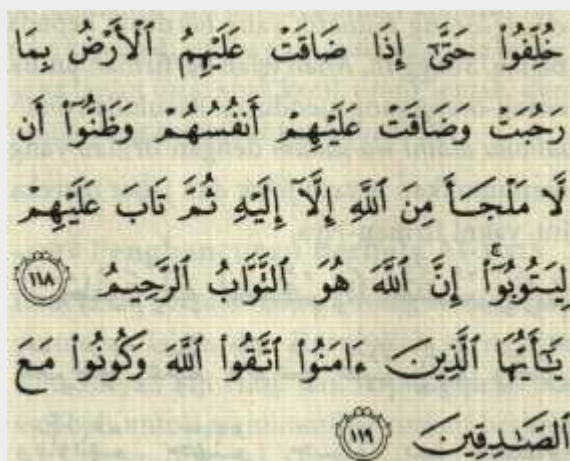 خُلِّفُوا۟ حَتَّىٰٓ إِذَا ضَاقَتْ عَلَيْهِمُ ٱلْأَرْضُ بِمَا
رَحُبَتْ وَضَاقَتْ عَلَيْهِمْ أَنفُسُهُمْ وَظَنُّوٓا۟ أَن
لَّا مَلْجَأَ مِنَ ٱللَّهِ إِلَّآ إِلَيْهِ ثُمَّ تَابَ عَلَيْهِمْ
لِيَتُوبُوٓا۟ۚ إِنَّ ٱللَّهَ هُوَ ٱلتَّوَّابُ ٱلرَّحِيمُ ١١٨
يَـٰٓأَيُّهَا ٱلَّذِينَ ءَامَنُوا۟ ٱتَّقُوا۟ ٱللَّهَ وَكُونُوا۟ مَعَ
ٱلصَّـٰدِقِينَ ١١٩